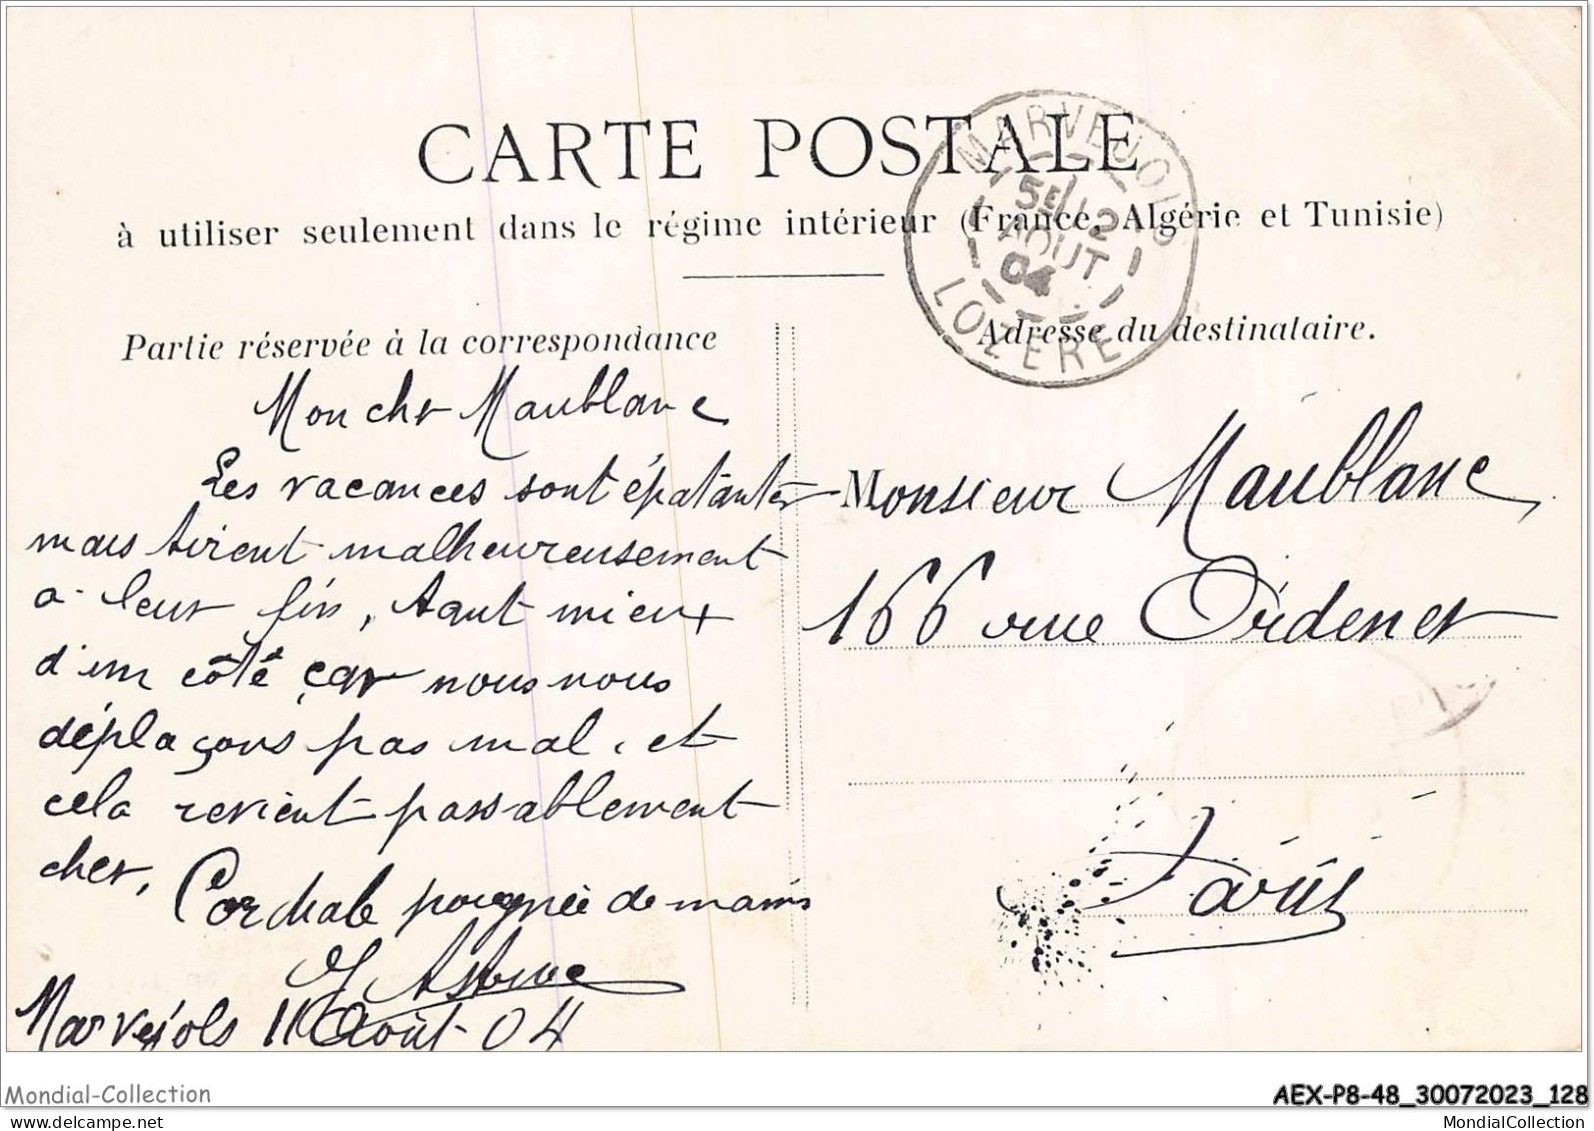 CARTE POSTALE
à utiliser seulement dans le régime intérieur (France, Algérie et Tunisie)
MARVEJOLS
5E
12
AOUT
04
LOZERE
Partie réservée à la correspondance
Mon cher Maublanc
Les vacances sont épatantes
mais tirent malheureusement
a leur fin, tant mieux
d'un côté car nous nous
déplaçons pas mal, et
cela revient passablement
cher,
Cordiale poignée de mains
Marvejols 11 Août 04
Adresse du destinataire.
Monsieur Maublanc
166 rue Ordener
Paris
Mondial-Collection
AEX-P8-48_30072023_128
mondial-collection.com
MondialCollection